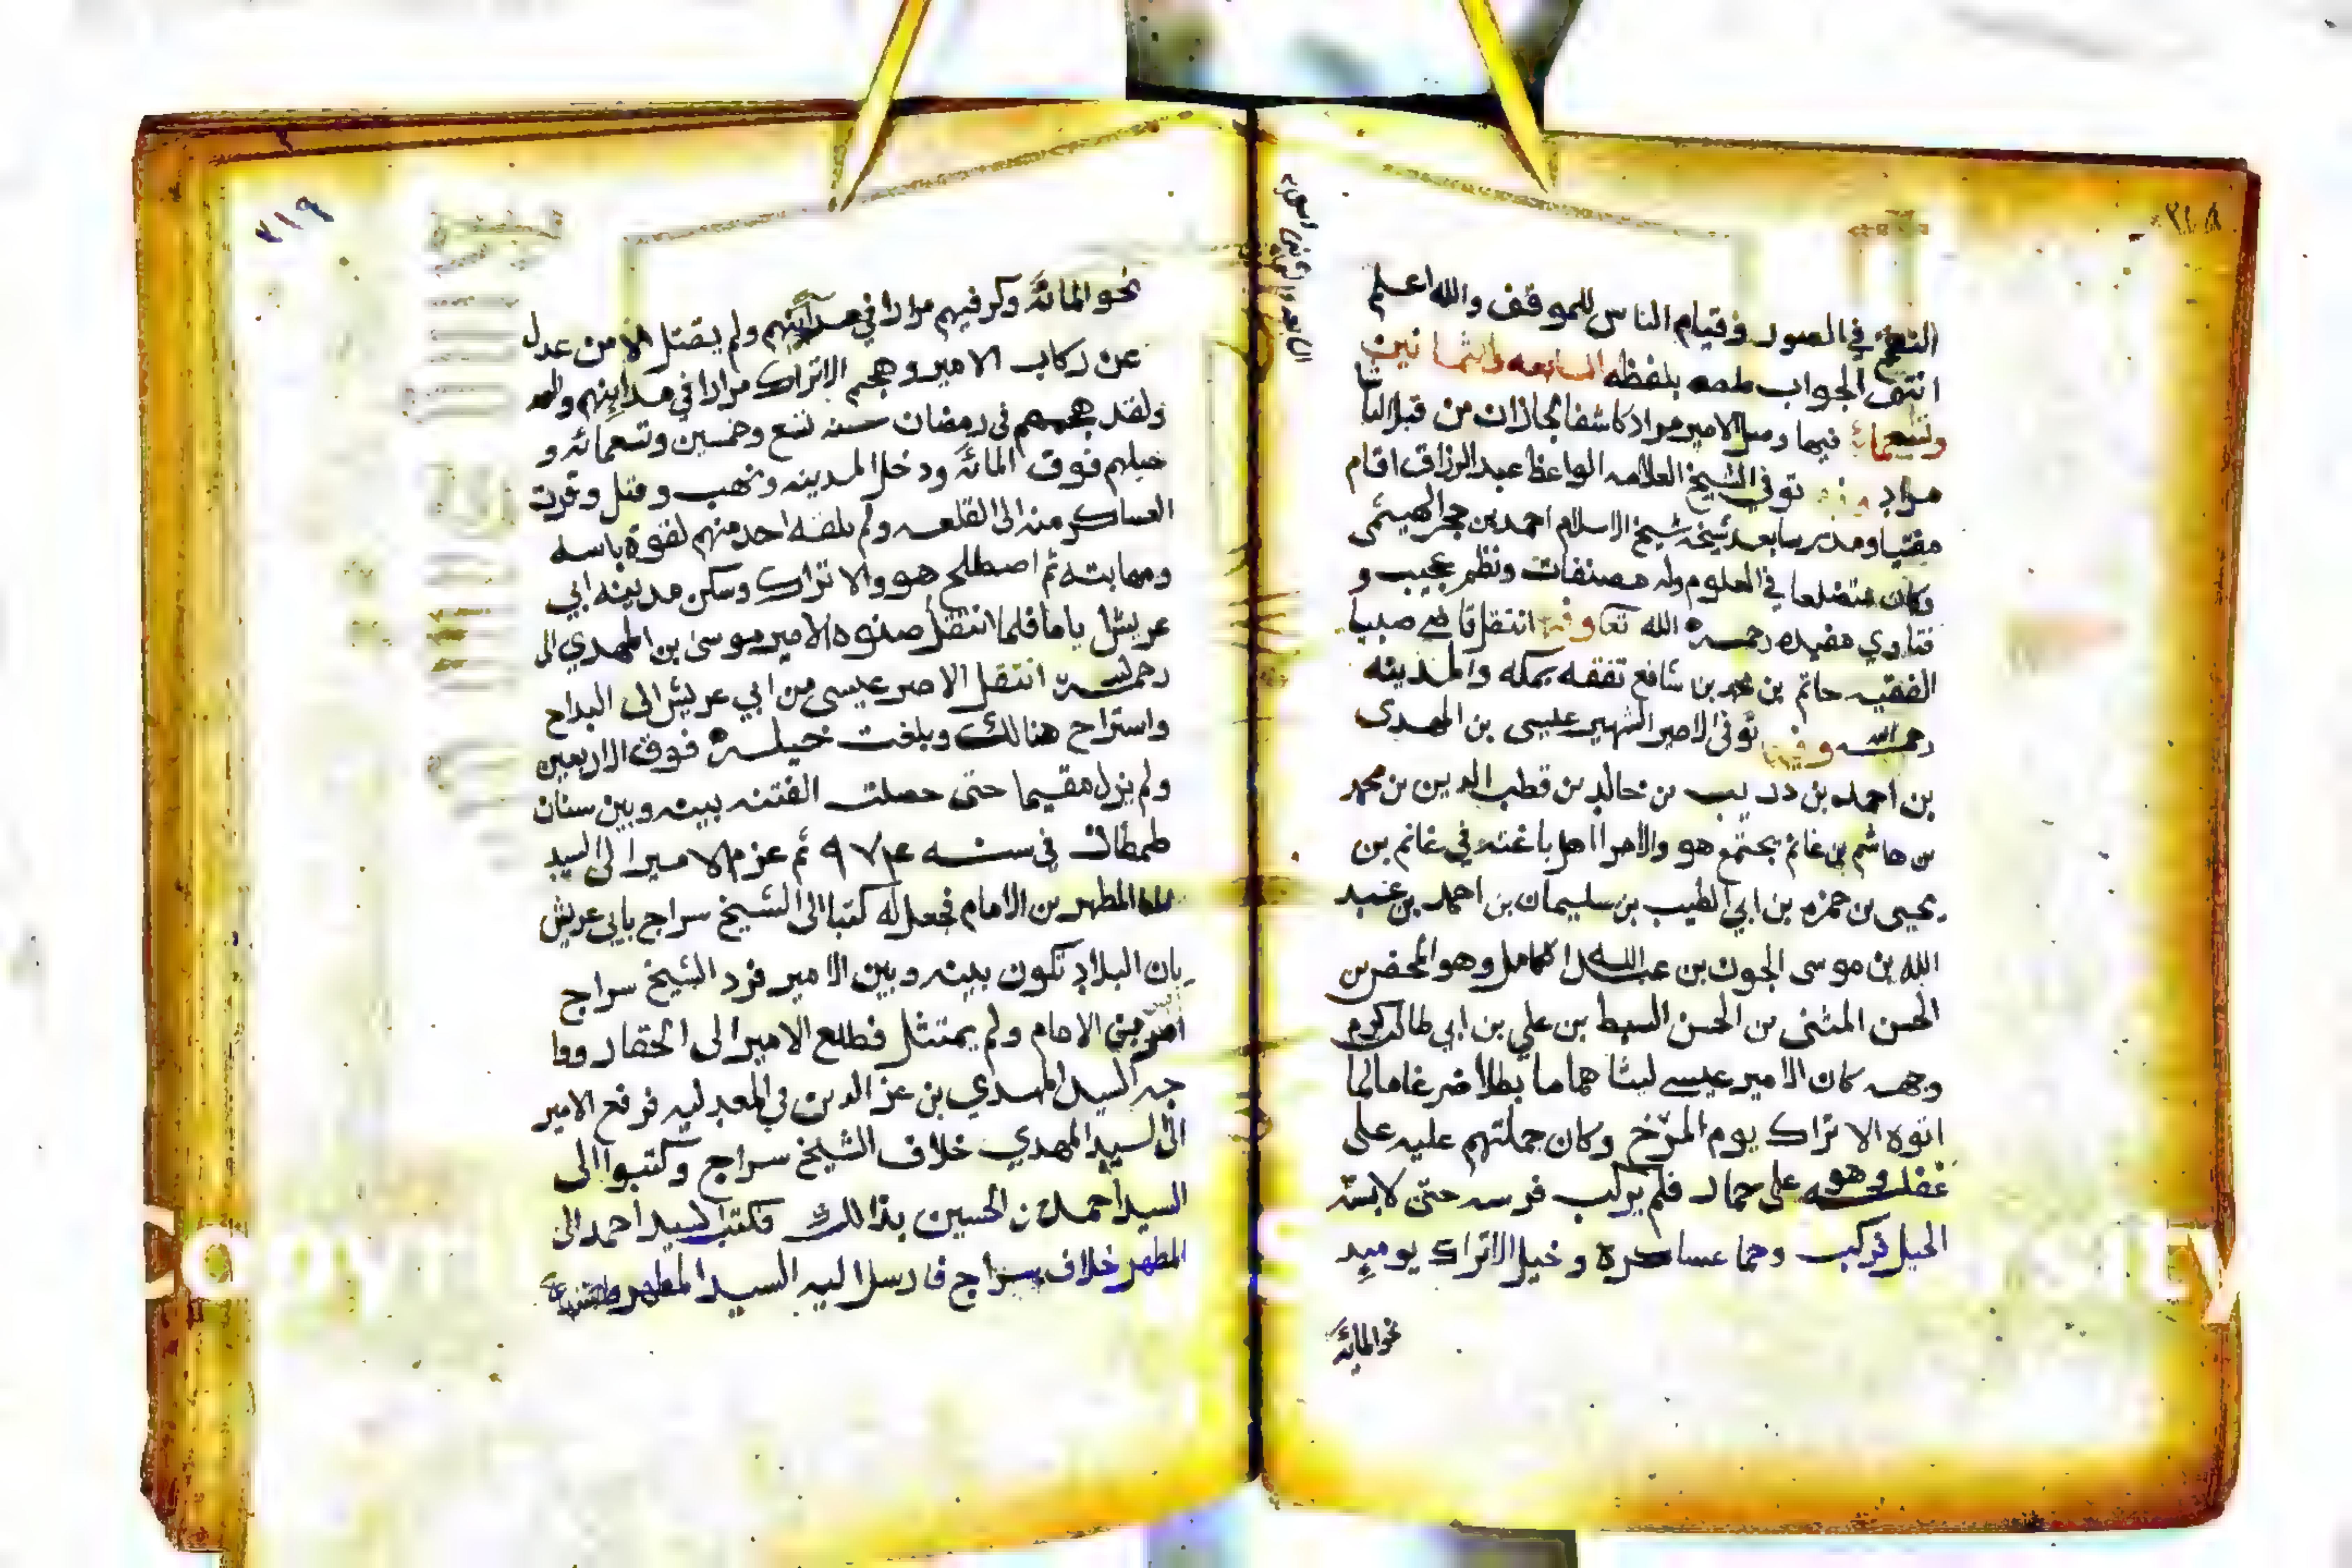 النفخ في الصور وقيام الناس للموقف والله اعلم
انتهى الجواب بلفظه السابعه والثمانين
وتسعمائة فيها الامير مراد كاشفا لجازان من قبل الباشا
مراد توفي الشيخ العلامه الواعظ عبد الرزاق اقام
مفتيا ومدرسا بعد شيخه شيخ الاسلام احمد بن حجر الهيتمي
وكان متضلعا في العلوم وله مصنفات ونظم عجيب و
فتاوي مفيده رحمه الله تعا وفيها انتقل قاضي صبيا
الفقيه حاتم بن محمد بن شافع تفقه بمكه والمدينه
رحمه الله وفيها توفى الامير الشهير عيسى بن المهدى
بن احمد بن دريب بن خالد بن قطب الدين بن محمد
بن هاشم بن غانم يجتمع هو والامرا اهل باغته في غانم بن
يحيى بن حمزه بن ابي الطيب بن سليمان بن احمد بن عبد
الله بن موسى الجون بن عبدالله الكامل وهو المحض بن
الحسن المثنى بن الحسن السبط بن علي بن ابي طالب كرم
وجهه كان الامير عيسى ليثا هماما بطلا ضرغاما لما
اتوه الاتراك يوم المرّخ وكان جملتهم عليه على
غفله وهو على حمار فلم يركب فرسه حتى لابسته
الخيل فركب وحما عساكره وخيل الاتراك يوميدٍ
نحو المائه
٣١٩
نحو المائة وكر فيهم مرارا في مدابنهم ولم يقتل الا من عدل
عن ركاب الامير وهجم الاتراك مرارا في مدابنهم
ولقد هجمهم في رمضان سنه تسع وخمسين وتسعمائه و
خيلهم فوق المائة ودخل المدينه ونهب وقتل وفرت
العساكر منه الى القلعه ولم يلقه احد منهم لقوة باسه
ومهابته ثم اصطلح هو والاتراك وسكن مدينه ابي
عريش ياما فلما انتقل صنوه الامير موسى بن المهدي الى
رحمه الله انتقل الامير عيسى من ابي عريش الى البداح
واستراح هنالك وبلغت خيله فوق الاربعين
ولم يزل مقيما حتى حصلت الفتنه بينه وبين سنان
طمطان في سنه ٩٧٤ ثم عزم الامير الى السيد
المطهر بن الامام فجعل له كتبا الى الشيخ سراج بابي عريش
بان البلاد تكون بينه وبين الامير فرد الشيخ سراج
امر من الامام ولم يمتثل فطلع الامير الى الحقار ووا
جه السيد المهدي بن عز الدين في المعدليه فرفع الامير
الى السيد المهدي خلاف الشيخ سراج وكتبوا الى
السيد احمد بن الحسين بذالك فكتب السيد احمد الى
المطهر خلاف سراج فارسل اليه السيد المطهر